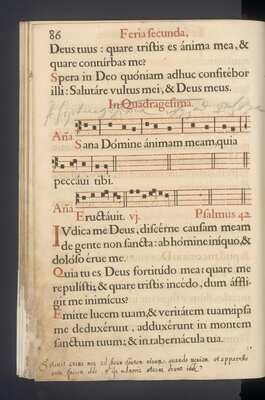 86 Feria secunda,
Deus tuus : quare tristis es ánima mea, &
quare contúrbas me?
Spera in Deo quóniam adhuc confitébor
illi : Salutáre vultus mei, & Deus meus.
In Quadragesima.
Aña Sana Dómine ánimam meam, quia
peccáui tibi.
Aña Eructáuit. vj. Psalmus 42.
IVdica me Deus, discérne causam meam
de gente non sancta : ab hómine iníquo, &
dolóso érue me.
Quia tu es Deus fortitúdo mea : quare me
repulísti; & quare tristis incédo, dum áffli-
git me inimícus?
Emitte lucem tuam, & veritátem tuam : ipsa
me deduxérunt, adduxérunt in montem
sanctum tuum; & in tabernácula tua.